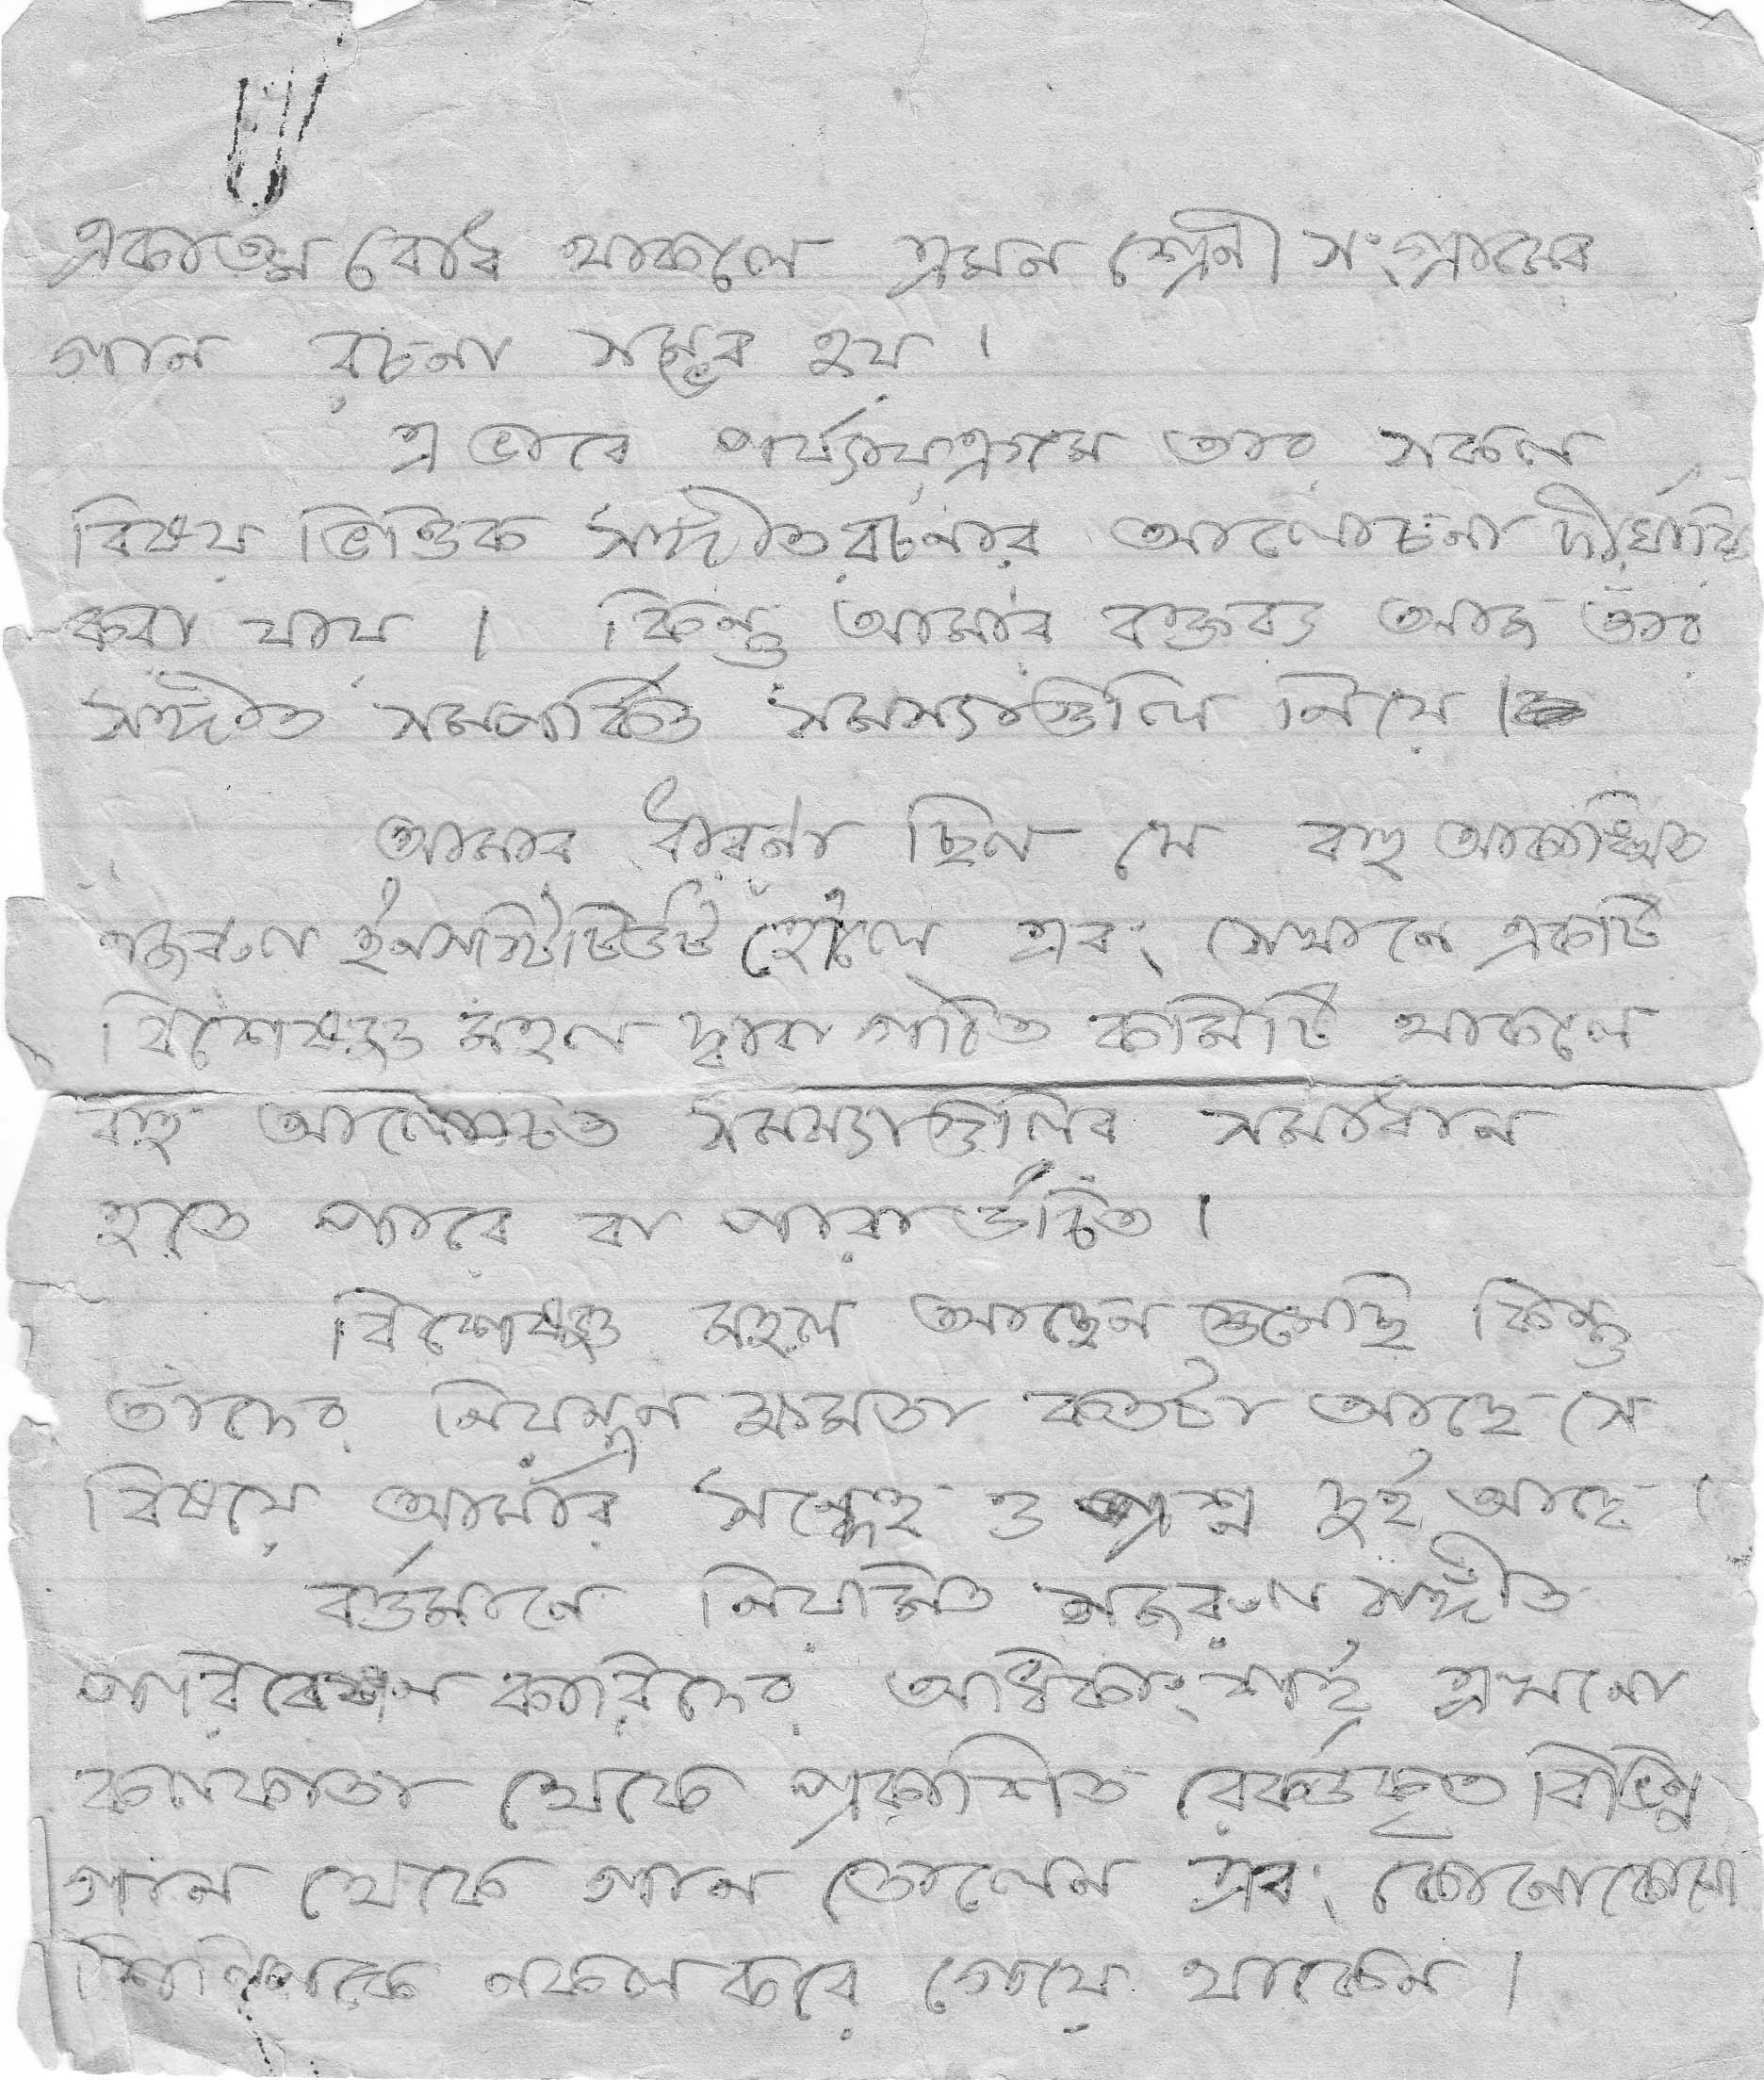 একাত্ম বোধ থাকলে এমন শ্রেনী সংগ্রামের
গান রচনা সম্ভব হয়।
এ ভাবে পর্য্যায়ক্রমে তার সকল
বিষয় ভিত্তিক সঙ্গীত রচনার আলোচনা দীর্ঘায়িত
করা যায়। কিন্তু আমার বক্তব্য আজ তাঁর
সঙ্গীত সম্পর্কিত সমস্যাগুলি নিয়ে।
আমার ধারনা ছিল যে বহু আকাঙ্খিত
নজরুল ইনসস্টিটিউট হোলে এবং সেখানে একটি
বিশেষজ্ঞ মহল দ্বারা গঠিত কমিটি থাকলে
বহু আলোচিত সমস্যাগুলির সমাধান
হতে পারে বা পারা উচিত।
বিশেষজ্ঞ মহল আছেন শুনেছি কিন্তু
তাঁদের নিয়ন্ত্রন ক্ষমতা কতটা আছে সে
বিষয়ে আমার সন্দেহ ও প্রশ্ন দুই আছে।
বর্ত্তমানে নিয়মিত নজরুল সঙ্গীত
পরিবেশন কারিদের অধিকাংশই এখনো
কলকাতা থেকে প্রকাশিত রেকর্ডকৃত বিভিন্ন
গান থেকে গান তোলেন এবং কোনো কোনো
শিল্পিকে নকল করে গেয়ে থাকেন।